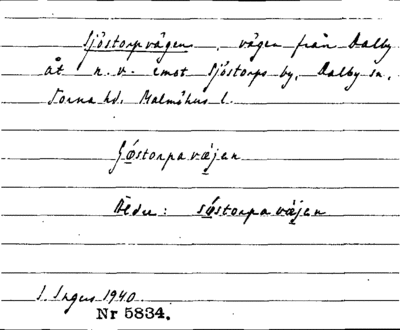 Sjöstorpvägen, vägen från Dalby
åt n.v. emot Sjöstorps by, Dalby sn,
Torna hd, Malmöhus l.
Sǿstorpavæjen
Äldre: sǿstorpavæjen
I. Ingers 1940
Nr 5834.